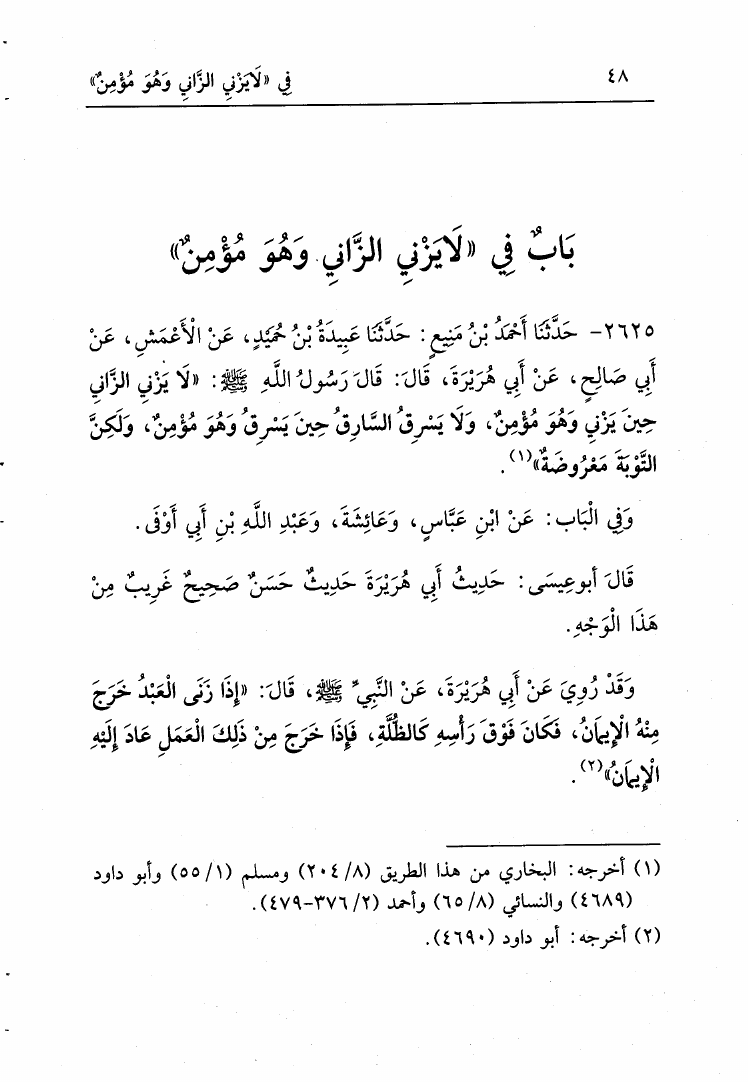 ٤٨ في «لَايَزْنِي الزَّانِي وَهُوَ مُؤْمِنٌ»
بَابٌ فِي «لَايَزْنِي الزَّانِي وَهُوَ مُؤْمِنٌ»
٢٦٢٥- حَدَّثَنَا أَحْمَدُ بْنُ مَنِيعٍ: حَدَّثَنَا عَبِيدَةُ بْنُ حُمَيْدٍ، عَنْ الْأَعْمَشِ، عَنْ
أَبِي صَالِحٍ، عَنْ أَبِي هُرَيْرَةَ، قَالَ: قَالَ رَسُولُ اللَّهِ ﷺ: «لَا يَزْنِي الزَّانِي
حِينَ يَزْنِي وَهُوَ مُؤْمِنٌ، وَلَا يَسْرِقُ السَّارِقُ حِينَ يَسْرِقُ وَهُوَ مُؤْمِنٌ، وَلَكِنَّ
التَّوْبَةَ مَعْرُوضَةٌ»(١).
وَفِي الْبَابِ: عَنْ ابْنِ عَبَّاسٍ، وَعَائِشَةَ، وَعَبْدِ اللَّهِ بْنِ أَبِي أَوْفَى.
قَالَ أَبوعِيسَى: حَدِيثُ أَبِي هُرَيْرَةَ حَدِيثٌ حَسَنٌ صَحِيحٌ غَرِيبٌ مِنْ
هَذَا الْوَجْهِ.
وَقَدْ رُوِيَ عَنْ أَبِي هُرَيْرَةَ، عَنْ النَّبِيِّ ﷺ، قَالَ: «إِذَا زَنَى الْعَبْدُ خَرَجَ
مِنْهُ الْإِيمَانُ، فَكَانَ فَوْقَ رَأْسِهِ كَالظُّلَّةِ، فَإِذَا خَرَجَ مِنْ ذَلِكَ الْعَمَلِ عَادَ إِلَيْهِ
الْإِيمَانُ»(٢).
(١) أخرجه: البخاري من هذا الطريق (٨/ ٢٠٤) ومسلم (١/ ٥٥) وأبو داود
(٤٦٨٩) والنسائي (٨/ ٦٥) وأحمد (٢/ ٣٧٦-٤٧٩).
(٢) أخرجه: أبو داود (٤٦٩٠).